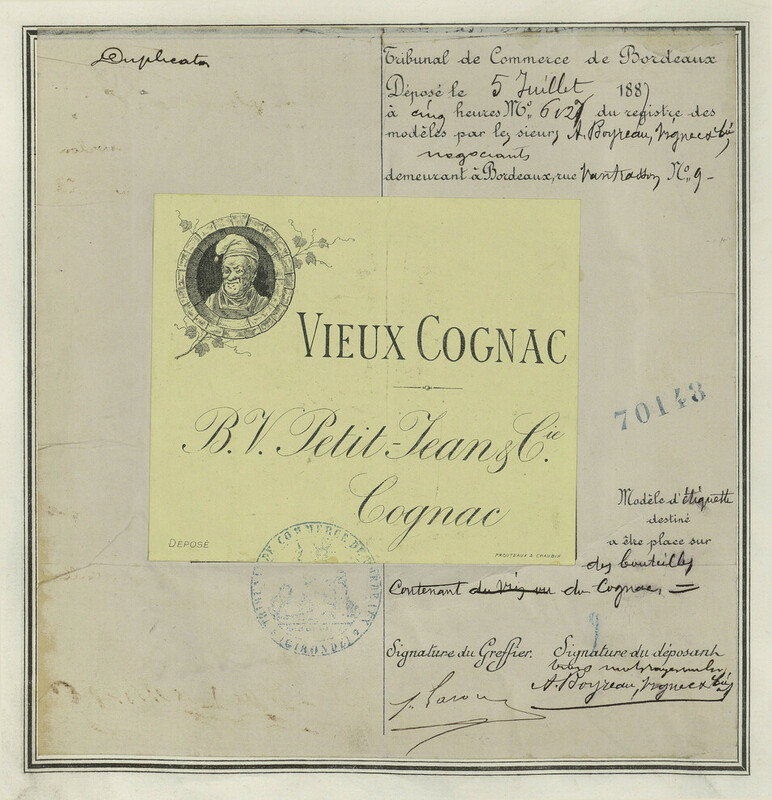 Duplicata
Tribunal de Commerce de Bordeaux
Déposé le 5 Juillet 1887
à cinq heures No. 6127 du registre des
modèles par les sieurs A. Boyreau, Vignec & Cie,
negociants
demeurant à Bordeaux, rue Vantrasson No. 9 -
VIEUX COGNAC
B.V. Petit-Jean & Cie.
Cognac
DEPOSÉ
PROUTEAUX & CHAUBIN
70148
Modèle d'étiquette
destiné
a être place sur
des bouteilles
Contenant du Vin ou du Cognac. =
TRIBUNAL DE COMMERCE DE BORDEAUX
(GIRONDE)
Signature du Greffier. Signature du déposant
A. Boyreau, Vignec & Cie